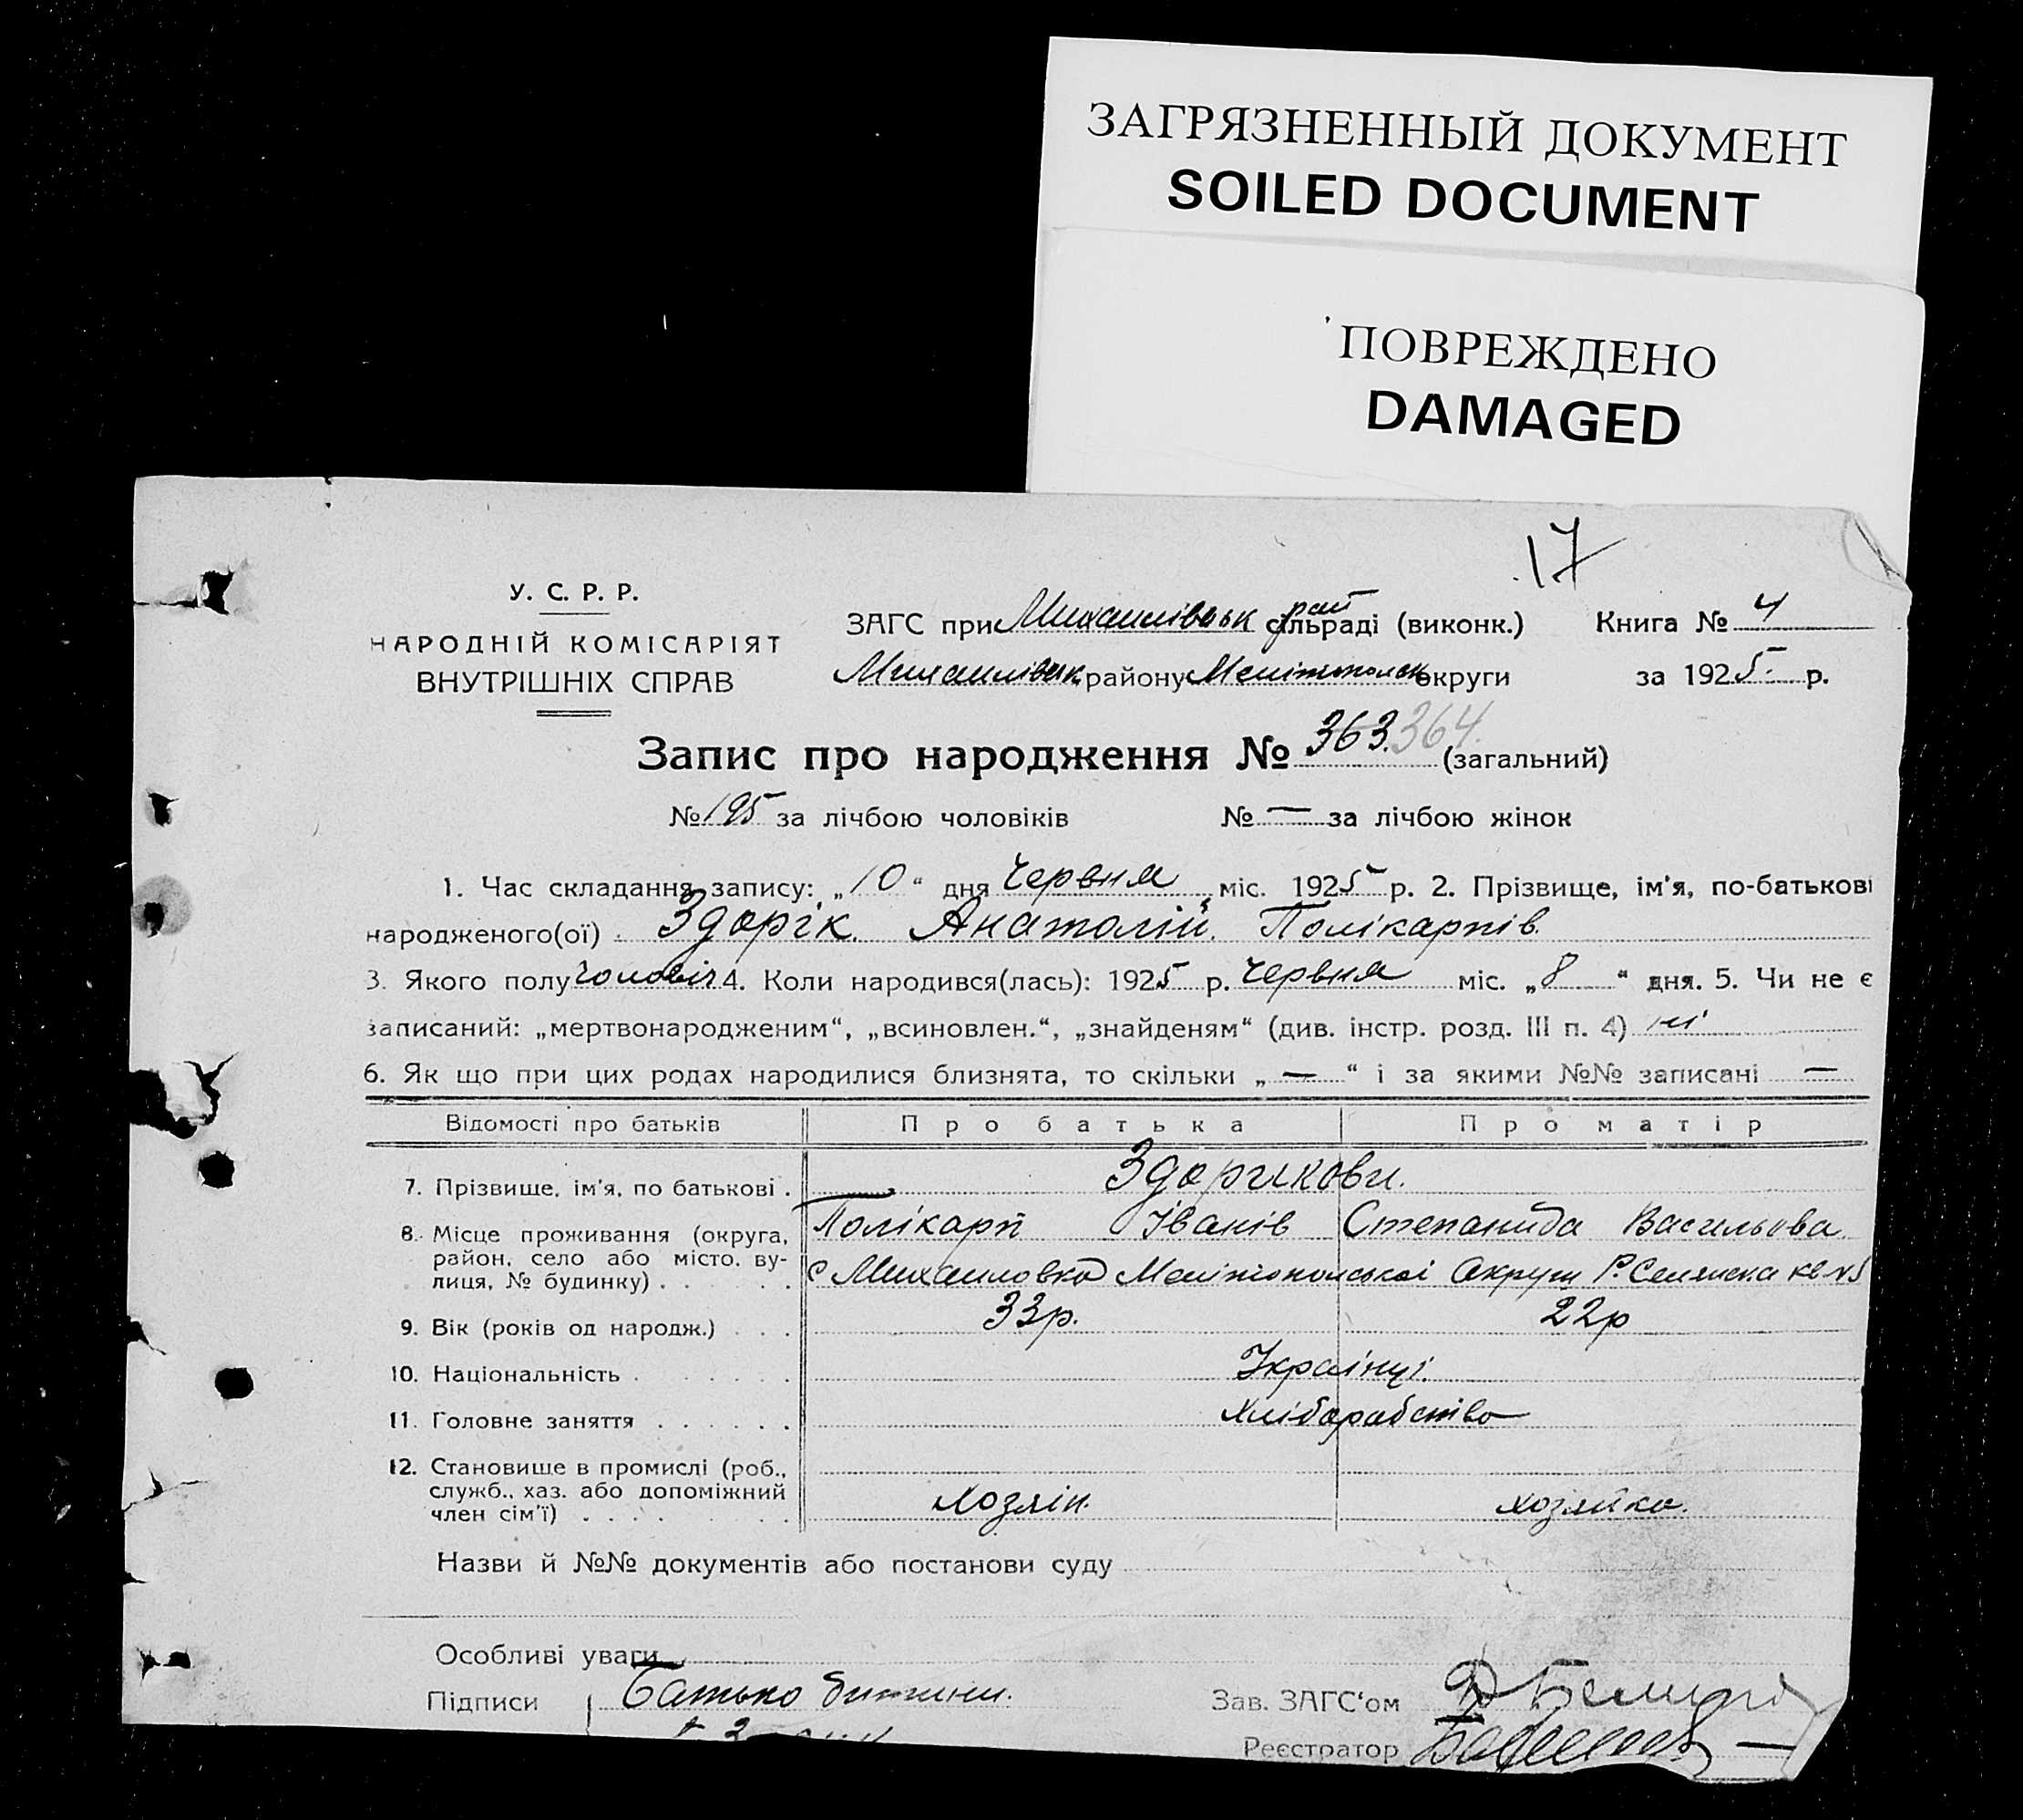 ЗАГРЯЗНЕННЫЙ ДОКУМЕНТ
SOILED DOCUMENT
ПОВРЕЖДЕНО
DAMAGED
17
У. С. Р. Р.
НАРОДНІЙ КОМІСАРІЯТ
ВНУТРІШНІХ СПРАВ
ЗАГС при Михаилівськ рай сільраді (виконк.) Книга № 4
Михаилівськ району Мелітопольськ округи за 1925 р.
Запис про народження № 363. 364. (загальний)
№ 195 за лічбою чоловіків № — за лічбою жінок
1. Час складання запису: „10“ дня Червня міс. 1925 р. 2. Прізвище, ім'я, по-батькові
народженого(ої) Здорік. Анатолій. Полікарпів.
3. Якого полу чоловіч 4. Коли народився(лась): 1925 р. Червня міс. „8“ дня. 5. Чи не є
записаний: „мертвонародженим“, „всиновлен.“, „знайденям“ (див. інстр. розд. III п. 4) ні
6. Як що при цих родах народилися близнята, то скільки „—“ і за якими №№ записані —
Відомості про батьків Про батька Про матір
7. Прізвище, ім'я, по батькові . Здорикови.
Полікарп Іванів Степанида Васильова
8. Місце проживання (округа,
район, село або місто, ву-
лиця, № будинку) . . . с Михаиловка Мелітопольської Округи Р. Селянська кв №
9. Вік (років од народж.) . . . 33р. 22р
10. Національність . . . . . . . Українці.
11. Головне заняття . . . . . . Хліборобство
12. Становище в промислі (роб.,
служб., хаз. або допоміжний
член сім'ї) . . . . . . . Хозяін. хозяйка.
Назви й №№ документів або постанови суду
Особливі уваги
Підписи Батько дитини. Зав. ЗАГС'ом
Реєстратор